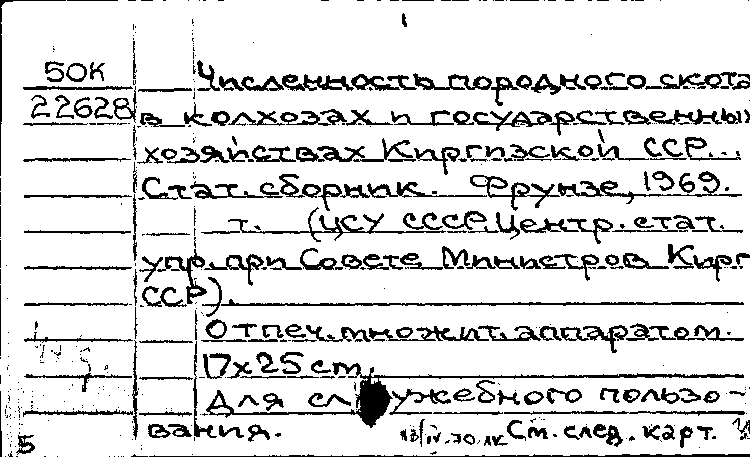 1
50К Численность породного скота
22628 в колхозах и государственны
хозяйствах Киргизской ССР...
Стат. сборник. Фрунзе, 1969.
т. (ЦСУ СССР. Центр. стат.
упр. при Совете Министров Кирг
ССР).
Отпеч. множит. аппаратом.
17x25 см.
Для служебного пользо-
вания.
См. след. карт.
5